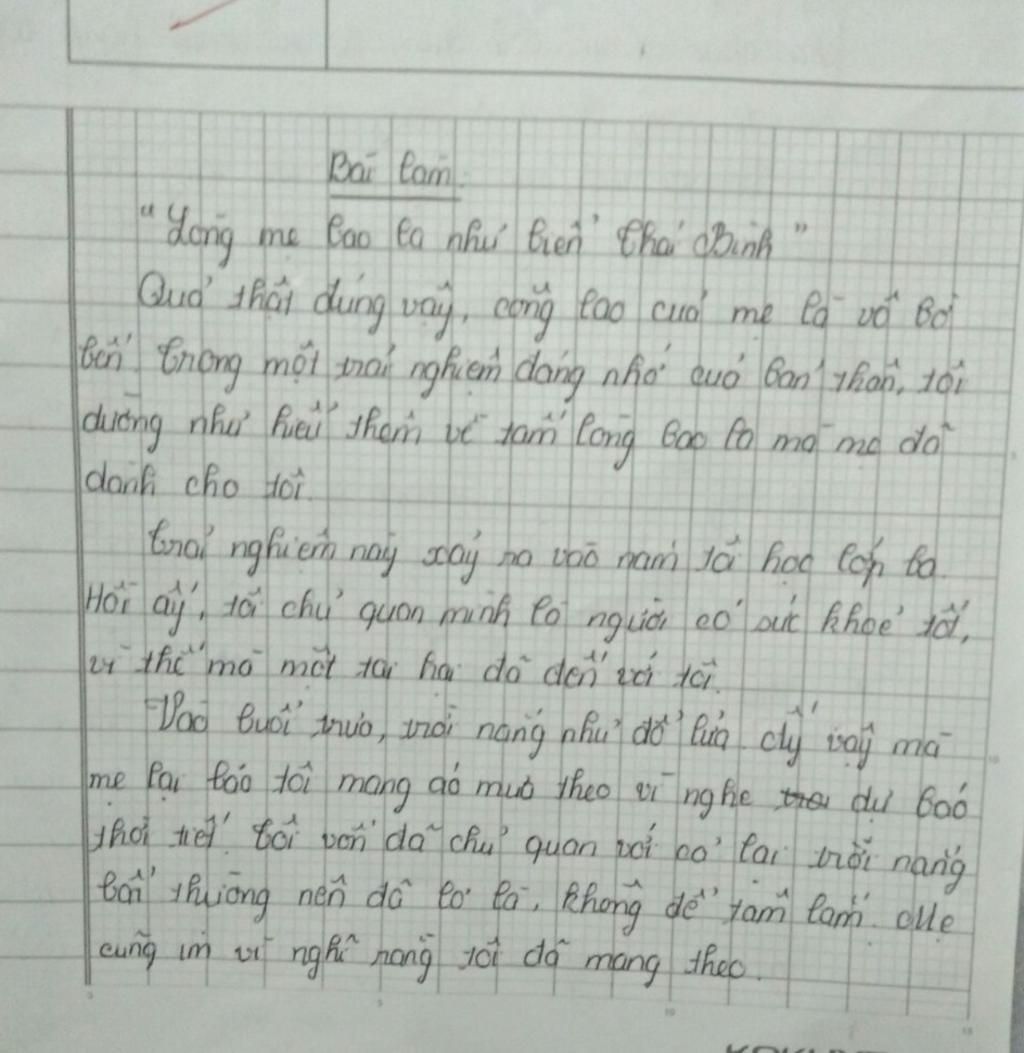 Bài làm
"Lòng mẹ bao la như biển Thái Bình"
Quả thật đúng vậy, công lao của mẹ là vô bờ
bến. Trong một trải nghiệm đáng nhớ của bản thân, tôi
dường như hiểu thêm về tấm lòng bao la mà mẹ đã
dành cho tôi.
Trải nghiệm này xảy ra vào năm tôi học lớp ba.
Hồi ấy, tôi chủ quan mình là người có sức khoẻ tốt,
vì thế mà một tai hại đã đến với tôi.
Vào buổi trưa, trời nắng như đổ lửa. Ấy vậy mà
mẹ lại bảo tôi mang áo mưa theo vì nghe dự báo
thời tiết. Tôi vốn đã chủ quan với cơ lại trời nắng
bất thường nên đã lơ là, không để tâm lắm. Mẹ
cũng im vì nghĩ rằng tôi đã mang theo.